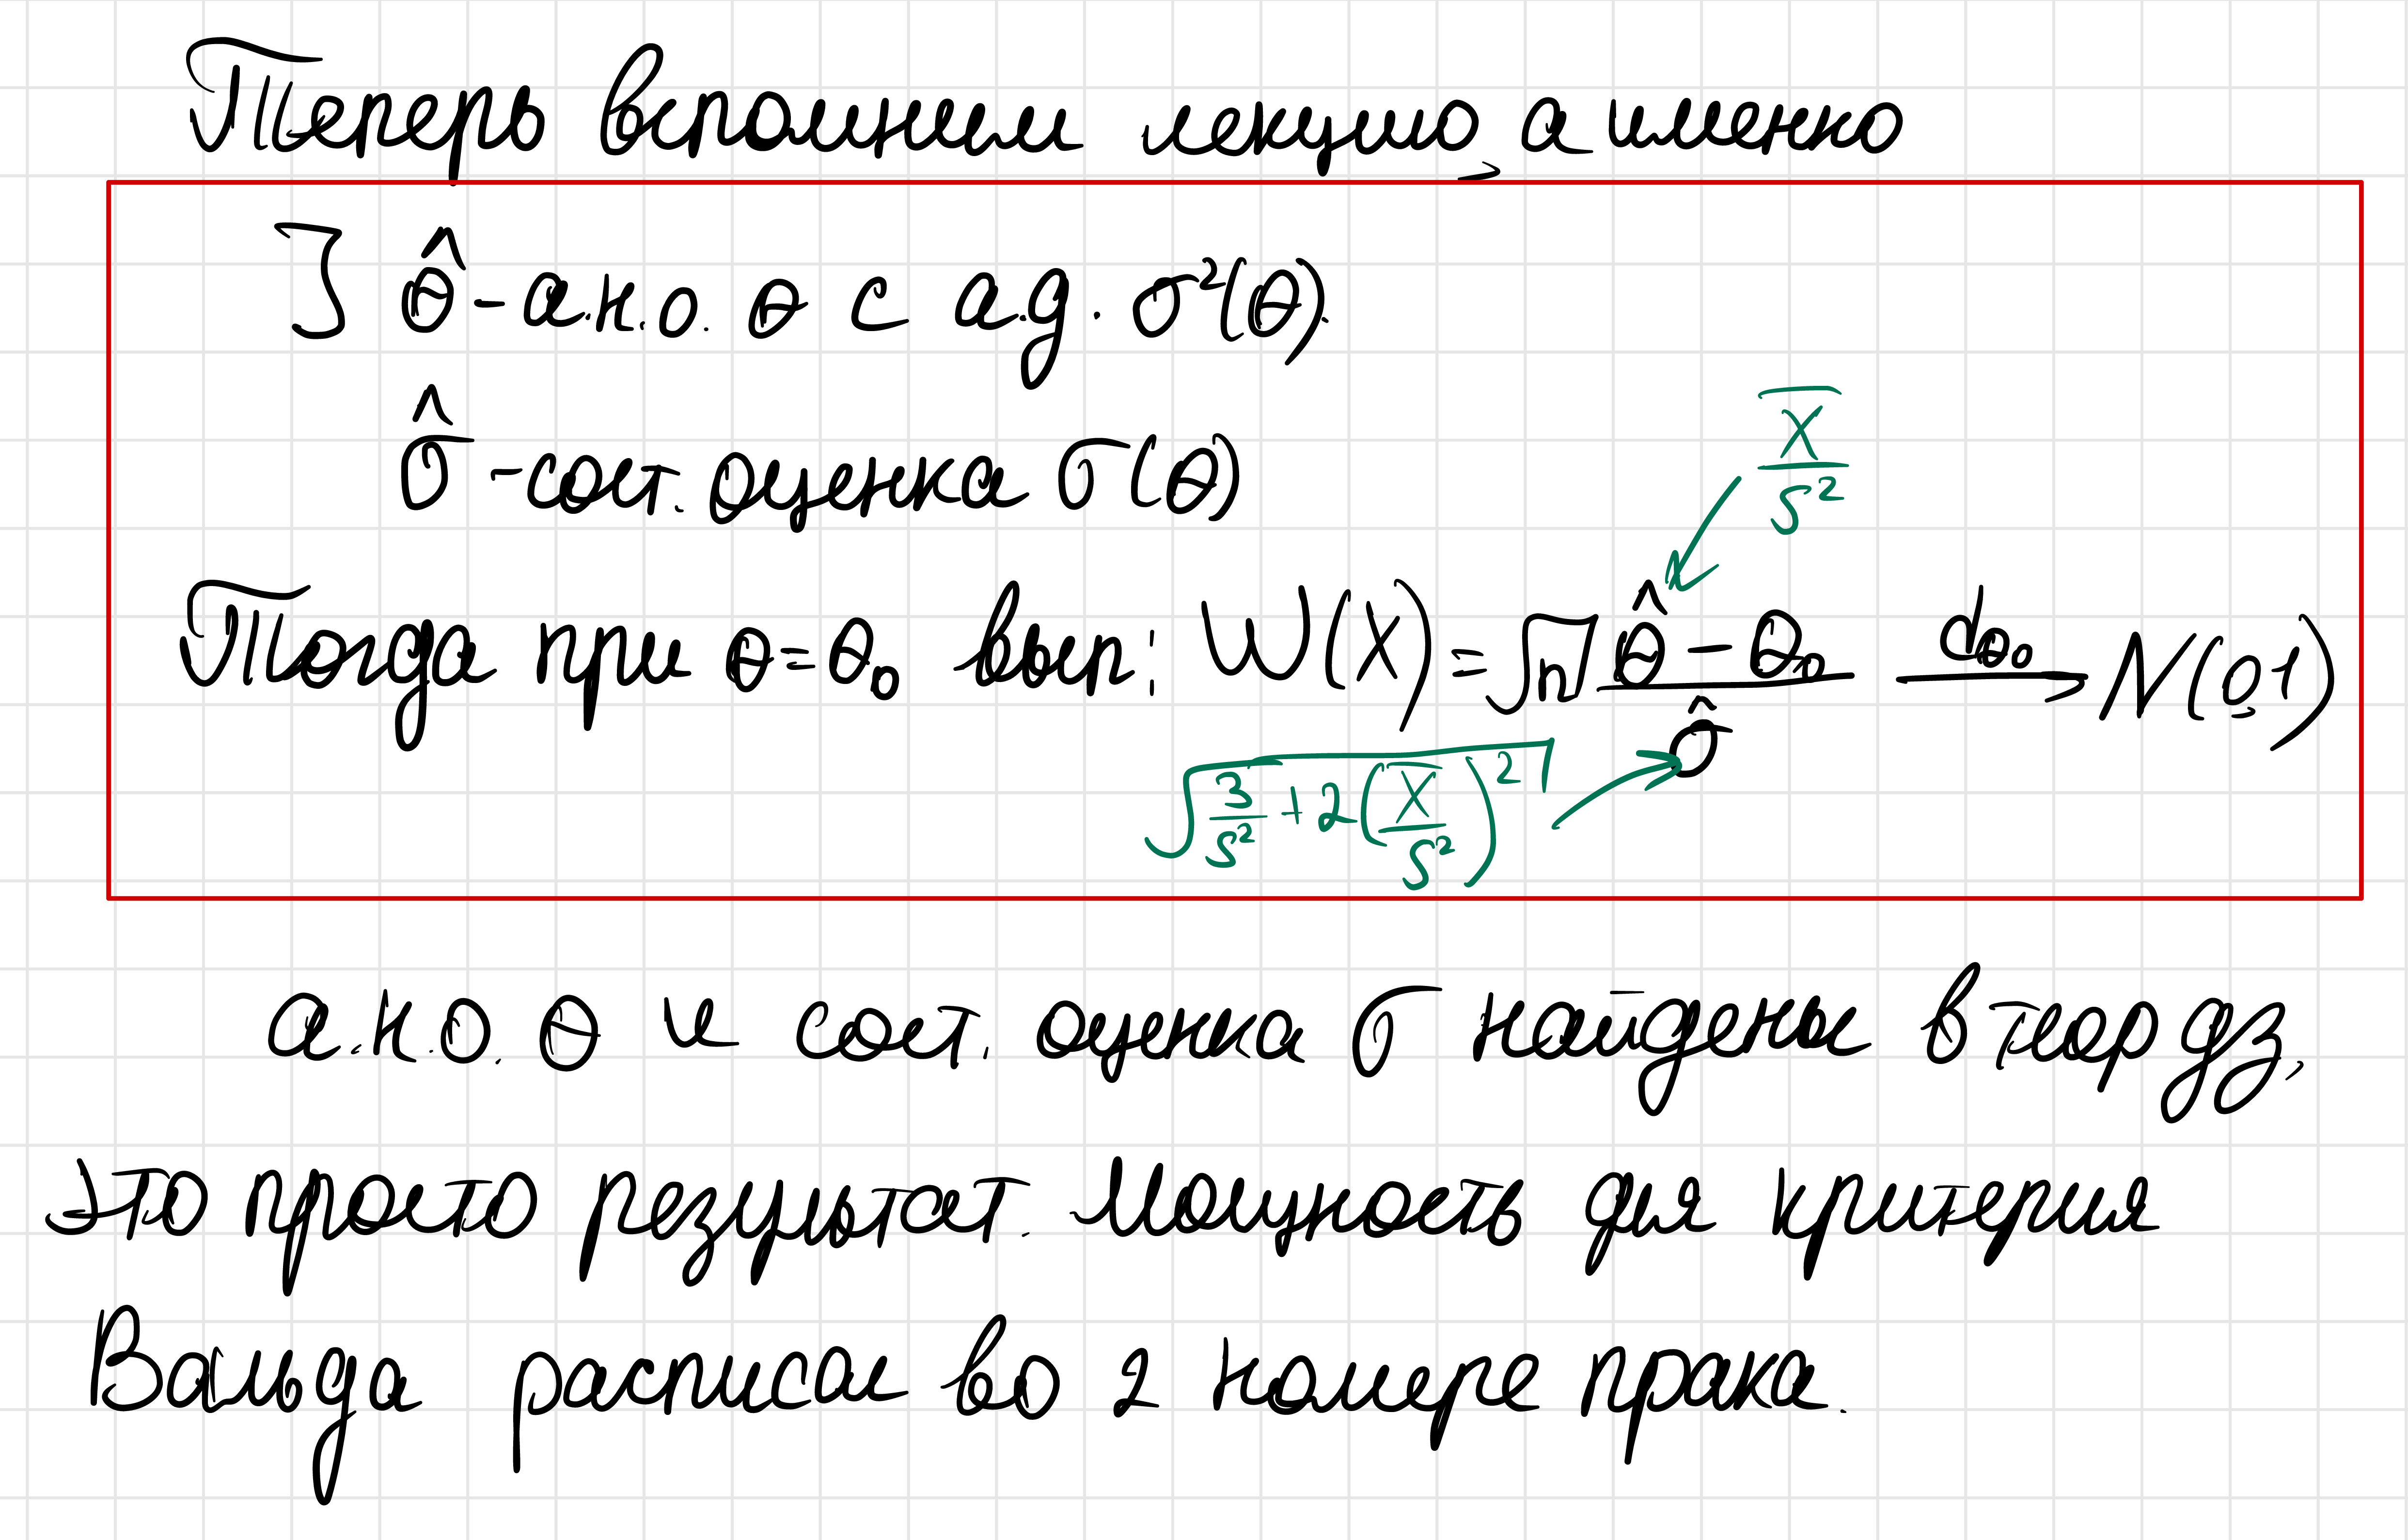 Теперь вспомним лекцию, а именно
] θ̂ - а.н.о. θ с ад. σ²(θ).
σ̂ - сост. оценка σ(θ)
X̅ / S²
Тогда при θ=θ₀ вып: W(X) = √n (θ̂ - θ₀) / σ̂ →(d_θ₀) N(0,1)
√(3/S² + 2(X̅/S²)²)
а.н.о. θ и сост. оценка σ найдены в теор дз,
это просто результат. Мощность для критерия
Вальда расписал во 2 номере прака.